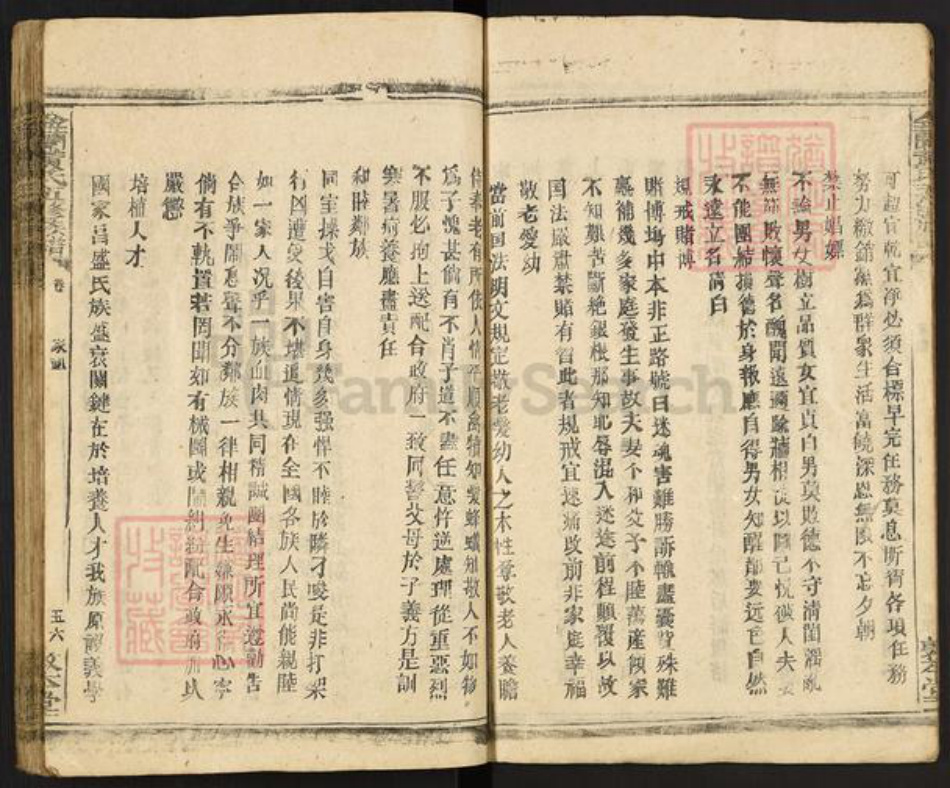 可超宜乾宜淨必須台標早完任務莫息所有各項任務
努力繳銷無為群眾生活富饒深恩無限不忘夕朝
禁止娼嫖
不論男女樹立品質女宜貞白男莫敗德不守清閨淫亂
無節敗懷聲名醜聞遠邇
不能團結損德於身報應自得男女知醒都要远色自然
永遠立名清白
規戒賭博
賭博場中本非正路號曰迷魂害難勝訴輸盡囊貲殊難
裹補幾多家庭發生事故夫妻不和父子不睦蕩產傾家
不知艱苦斷絕銀根那知耻辱混入迷途前程顛覆以故
国法嚴肅禁賭有習此者規戒宜速痛改前非家庭幸福
敬老愛幼
當前国法明文規定敬老愛幼人之本性尊敬老人養贍
侍奉老有所依人情平順禽犢知愛蜂蟻知敬人不如物
爲子愧甚倘有不肖子道不盡任意忤逆處理從重惡烈
不服必拘上送配合政府一致同警父母於子義方是訓
寒暑病養應盡責任
和睦鄰族
同室操戈自害自身幾多强悍不睦於隣刁唆是非打架
行凶遭受後果不堪追情現在全國各族人民尚能親睦
如一家人況乎一族血肉共同精誠團結理所宜遵勸告
合族爭鬧惡聲不分鄰族一律相親免生嫌隙永得心寧
倘有不軌置若罔聞如有械鬭或鬧糾紛配合政府加以
嚴懲
培植人才
國家昌盛民族盛衰關鍵在於培養人才我族原設義學
卷
家訓
五六
敦本堂